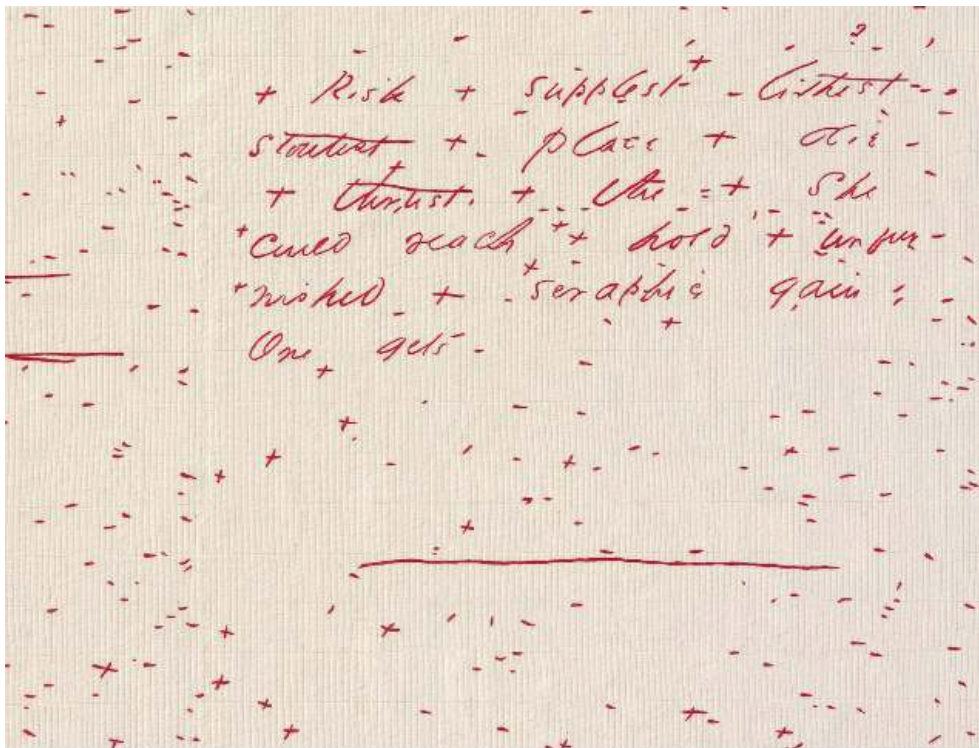 + Risk + supplest + - lithest - -
stoutest + - place + die -
+ thrust. + - the - = + She
+ could reach + + hold + unfur-
+ nished - + - + seraphic gain :
One gets -